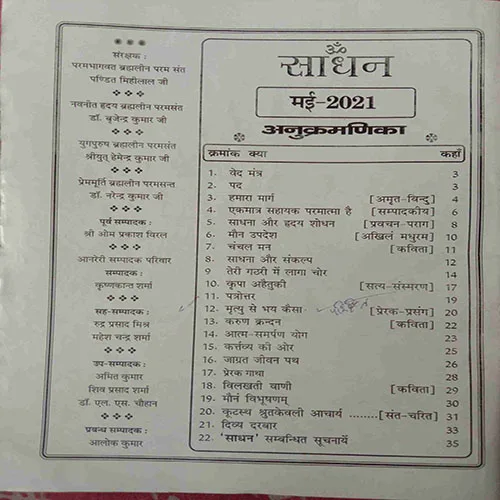 संरक्षक :
परमभागवत ब्रह्मलीन परम संत
पण्डित मिहीलाल जी
नवनीत हृदय ब्रह्मलीन परमसंत
डॉ. बृजेन्द्र कुमार जी
युगपुरुष ब्रह्मलीन परमसंत
श्रीयुत् हेमेन्द्र कुमार जी
प्रेममूर्ति ब्रह्मलीन परमसन्त
डॉ. नरेन्द्र कुमार जी
पूर्व सम्पादक :
श्री ओम प्रकाश विरल
आनरेरी सम्पादक परिवार
सम्पादक :
कृष्णकान्त शर्मा
सह-सम्पादक :
रुद्र प्रसाद मिश्र
महेश चन्द्र शर्मा
उप-सम्पादक :
अमित कुमार
शिव प्रसाद शर्मा
डॉ. एल. एस. चौहान
प्रबन्ध सम्पादक :
आलोक कुमार
ॐ
साधन
मई-2021
अनुक्रमणिका
क्रमांक क्या कहाँ
1. वेद मंत्र 3
2. पद 3
3. हमारा मार्ग [अमृत-विन्दु] 4
4. एकमात्र सहायक परमात्मा है [सम्पादकीय] 6
5. साधना और हृदय शोधन [प्रवचन-पराग] 8
6. मौन उपदेश [अखिलं मधुरम] 10
7. चंचल मन [कविता] 11
8. साधना और संकल्प 12
9. तेरी गठरी में लागा चोर 14
10. कृपा अहैतुकी [सत्य-संस्मरण] 17
11. पत्रोत्तर 19
12. मृत्यु से भय कैसा [प्रेरक-प्रसंग] 20
13. करुण क्रन्दन [कविता] 22
14. आत्म-समर्पण योग 23
15. कर्त्तव्य की ओर 25
16. जाग्रत जीवन पथ 26
17. प्रेरक गाथा 28
18. विलखती वाणी [कविता] 29
19. मौनं विभूषणम् 30
20. कूटस्थ श्रुतकेवली आचार्य ........[संत-चरित] 31
21. दिव्य दरबार 33
22. 'साधन' सम्बन्धित सूचनायें 35